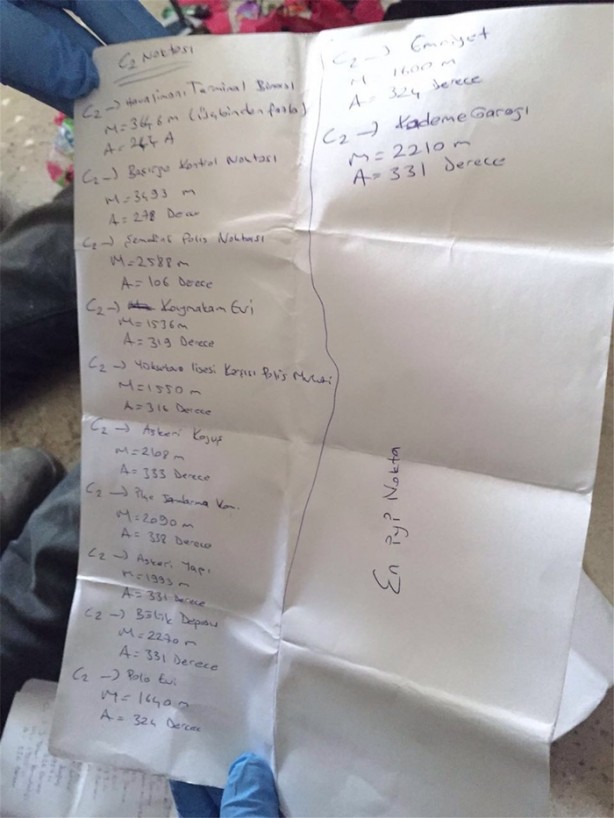 C2 Noktası
C2 → Havalimanı Terminal Binası
M = 3646 m (üçbinden fazla)
A = 244 A
C2 → Kontrol Noktası
M = 3493 m
A = 278
C2 → Şemdinli Polis Noktası
M = 2588 m
A = 106 Derece
C2 → Kaymakam Evi
M = 1536 m
A = 319 Derece
C2 → Yüksekova Lisesi Karşısı Polis
M = 1550 m
A = 316 Derece
C2 → Askeri Koğuş
M = 2108 m
A = 333 Derece
C2 → Jandarma Kom.
M = 2090 m
A = 338 Derece
C2 → Askeri Yapı
M = 1993 m
A = 331 Derece
C2 → Bölük Deposu
M = 2270 m
A = 331 Derece
C2 → Polis Evi
M = 1640 m
A = 324 Derece
C2 → Emniyet
M = 1600 m
A = 324 Derece
C2 → Kademe Garajı
M = 2210 m
A = 331 Derece
En İyi Nokta